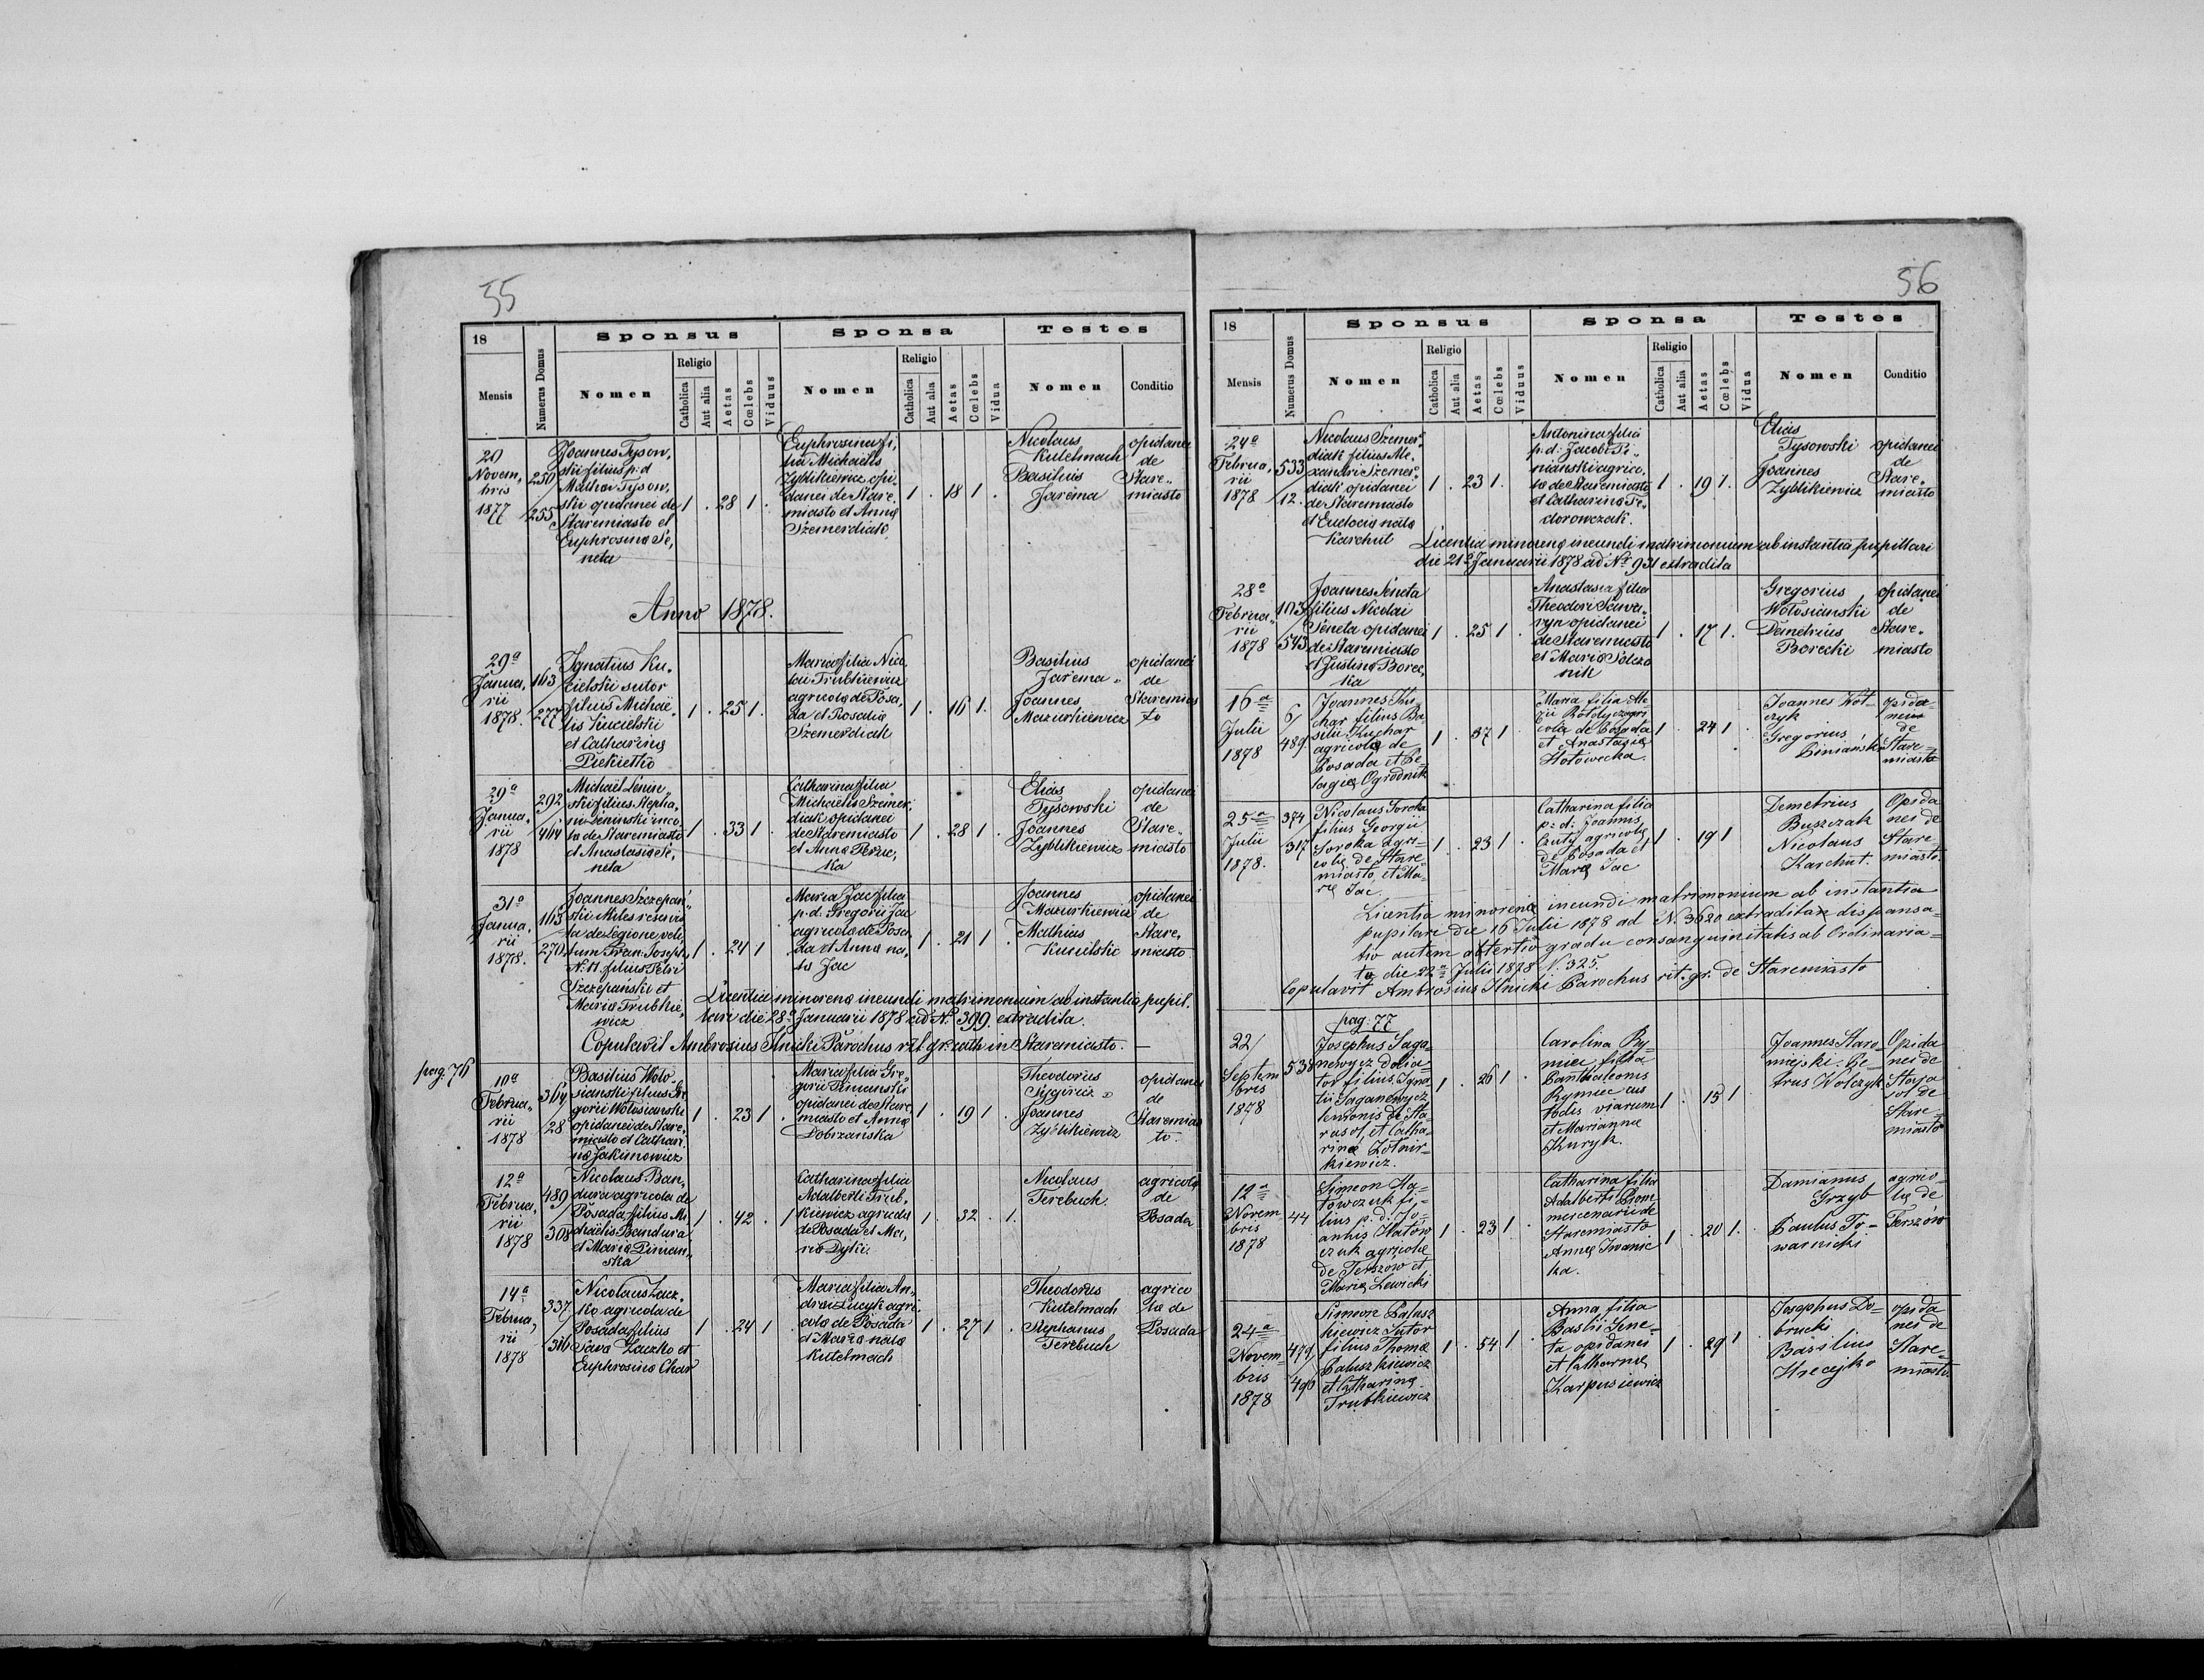 55
18
Mensis
Numerus Domus
Sponsus
Nomen
Religio
Catholica
Aut alia
Aetas
Cœlebs
Viduus
Sponsa
Nomen
Religio
Catholica
Aut alia
Aetas
Cœlebs
Vidua
Testes
Nomen
Conditio
20
Novem,
bris
1877
250
255
Joannes Tysow,
ski filius p: d
Mathei Tysow,
ski opidanei de
Staremiasto et
Euphrosina Se,
neta
1 . 28 1 .
Euphrosina fi,
lia Michaelis
Zyblikiewicz opi,
danei de Stare,
miasto et Anna
Szemerdiak
1 . 18 1 .
Nicolaus
Kutelmach
Basilius
Jarema
opidanei
de
Stare,,
miasto
Anno 1878.
29a
Janua,
rii
1878.
163
277
Ignatius Ku,
cielski sutor
filius Michae,
lis Kucielski
et Catharina
Pukietko
1 . 25 1 .
Maria filia Nico,
lai Trubkiewicz
agricola de Posa,
da et Rosalia
Szemerdiak
1 . 16 1 .
Basilius
Jarema
Joannes
Mazurkiewicz
opidanei
de
Staremias
to
29a
Janua,
rii
1878
292
464
Michael Lenin,
ski filius Stepha,
ni Leninski inco,
la de Staremiasto
et Anastasia Se,
neta
1 . 33 1 .
Catharina filia
Michaelis Szemer,
diak opidanei
de Staremiasto
et Anna Peruc,
ka
1 . 28 1 .
Elias
Tysowski
Joannes
Zyblikiewicz
opidanei
de
Stare,,
miasto
31a
Janua,
rii
1878.
163
270
Joannes Szczepań,
ski Miles reservis
ta de Legione pedi,
tum Fran: Joseph,
No: 11. filius Petri
Szczepański et
Maria Trubkie,
wicz
1 . 24 1
Maria Jac filia
p. d. Gregorii Jac
agricola de Posa,
da et Anna na,
ta Jac
1 . 21 1 .
Joannes
Mazurkiewicz
Mathias
Kucielski
opidanei
de
Stare,
miasto
Licentia minorena ineundi matrimonium ab instantia pupil,
lari die 28a Januarii 1878 ad No. 399. extradita.
Copulavit Ambrosius Ilnicki Parochus rit. gr. cath in Staremiasto. —
pag. 76
10a
Februa,,
rii
1878
364
28
Basilius Woło,
sianski filius Gre,
gorii Wołosianski
opidanei de Stare,
miasto et Cathari,
na Jakimowicz
1 . 23 1 .
Maria filia Gre,
gorii Piniański
opidanei de Stare,
miasto et Anna
Dobrzańska
1 . 19 1 .
Theodorus
Joannes
Zyblikiewicz
opidanei
de
Staremias
to
12a
Februa,
rii
1878
489
308
Nicolaus Ban,
dura agricola de
Posada filius Mi,
chaëlis Bandura
et Maria Pinian,
ska
1 . 42 . 1
Catharina filia
Adalberti Trub,
kiewicz agricola
de Posada et Ma,
ria Dyki
1 . 32 . 1.
Nicolaus
Terebuch
agricola
de
Posada
14a
Februa,
rii
1878
337.
316
Nicolaus Łacz,
ko agricola de
Posada filius
Sava Łaczko et
Euphrosina Char
1 . 24 1
Maria filia An,
drei Łucyk agri,
cola de Posada
et Maria nata
Kutelmach
1 . 27 1 .
Theodorus
Kutelmach
Stephanus
Terebuch
agrico
la de
Posada
56
18
Mensis
Numerus Domus
Sponsus
Nomen
Religio
Catholica
Aut alia
Aetas
Cœlebs
Viduus
Sponsa
Nomen
Religio
Catholica
Aut alia
Aetas
Cœlebs
Vidua
Testes
Nomen
Conditio
24a
Februa,
rii
1878
533
12.
Nicolaus Szemer,
diak filius Ale,
xandri Szemer,
diak opidanei
de Staremiasto
et Eudocia nata
Karchut
1 . 23 1 .
Antonina filia
p. d. Jacobi Pi,
niański agrico,
la de Staremiasto
et Catharina Fe,
dorowczak.
1 . 19 1.
Elias
Tysowski
Joannes
Zyblikiewicz
opidanei
de
Stare,,
miasto
Licentia minorena ineundi matrimonium ab instantia pupillari
die 21a Januarii 1878 ad No 931 extradita
28a
Februa,,
rii
1878
103
543
Joannes Seneta
filius Nicolai
Seneta opidanei
de Staremiasto
et Justina Borec,
ka
1 . 25 1 .
Anastasia filia
Theodori Sawa,
ryn opidanei
de Staremiasto
et Maria Solcza
nik
1 . 17 1 .
Gregorius
Wołosianski
Demetrius
Borecki
opidanei
de
Stare,,
miasto
16a
Julii
1878
6/
489.
Joannes Ku,
char filius Ba
silii Kuchar
agricola de
Posada et Pe,
lagia Ogrodnik
1 . 37 1
Maria filia Ale,
xii Rołdycz agri
cola de Posada
et Anastasia
Hołowecka.
1 . 24 1
Joannes Woł=
czyk
Gregorius
Piniański
opida=
nei
de
Stare=
miasto
25a
Julii
1878.
374
317
Nicolaus Soroka
filius Georgii
Soroka agri=
cola de Stare
miasto, et Ma,
ria Jac.
1 . 23 1 .
Catharina filia
p: d: Joannis
Czuty agricola
de Posada et
Maria Jac
1 . 19 1
Demetrius
Buszczak
Nicolaus
Karchut.
Opida
nei de
Stare=
miasto.
Licentia minorena ineundi matrimonium ab instantia
pupilari die 16 Julii 1878 ad N. 3620 extradita dispensa=
tio autem a tertio gradu consanguinitatis ab Ordinaria=
to die 22a Julii 1878 N. 325.
Copulavit Ambrosius Ilnicki Parochus rit. gr. de Staremiasto
pag: 77
22/
Septem
bris
1878
538
Josephus Saga=
nowycz dolia=
tor filius Igna
tii Saganowycz
temonis de Sta=
rasol, et Catha=
rina Żołnir=
kiewicz.
1 . 26 1 .
Carolina Ry=
miec filia
Panthaleonis
Rymiec cus
todis viarum
et Marianna
Kuryk.
1 . 15 1
Joannes Staro=
miejski. Pe=
trus Wołczyk
Opida
nei de
Stara
sol de
Stare=
miasto
12a
Novem
bris
1878
44
Simeon Ha=
towczuk fi=
lius p: d: Jo=
annis Hatów
czuk agricola
de Terszow et
Maria Lewicki
1 . 23 1 .
Catharina filia
Adalberti Prom
mercenarii de
Staremiasto
Anna Iwanic
ka.
1 . 20 1.
Damianus
Grzyb
Paulus To=
warnicki
agrico=
la de
Terszów
24a
Novem=
bris
1878
479
490
Simeon Pałusz
kiewicz Sutor
filius Thoma
Pałuszkiewicz
et Catharina
Trubkiewicz
1 . 54 1 .
Anna filia
Basilii Sene=
ta opidanei
et Catharina
Karpusiewicz
1 . 29 1
Josephus Do=
brucki
Basilius
Hrecejko
opida
nei de
Stare=
miasto.